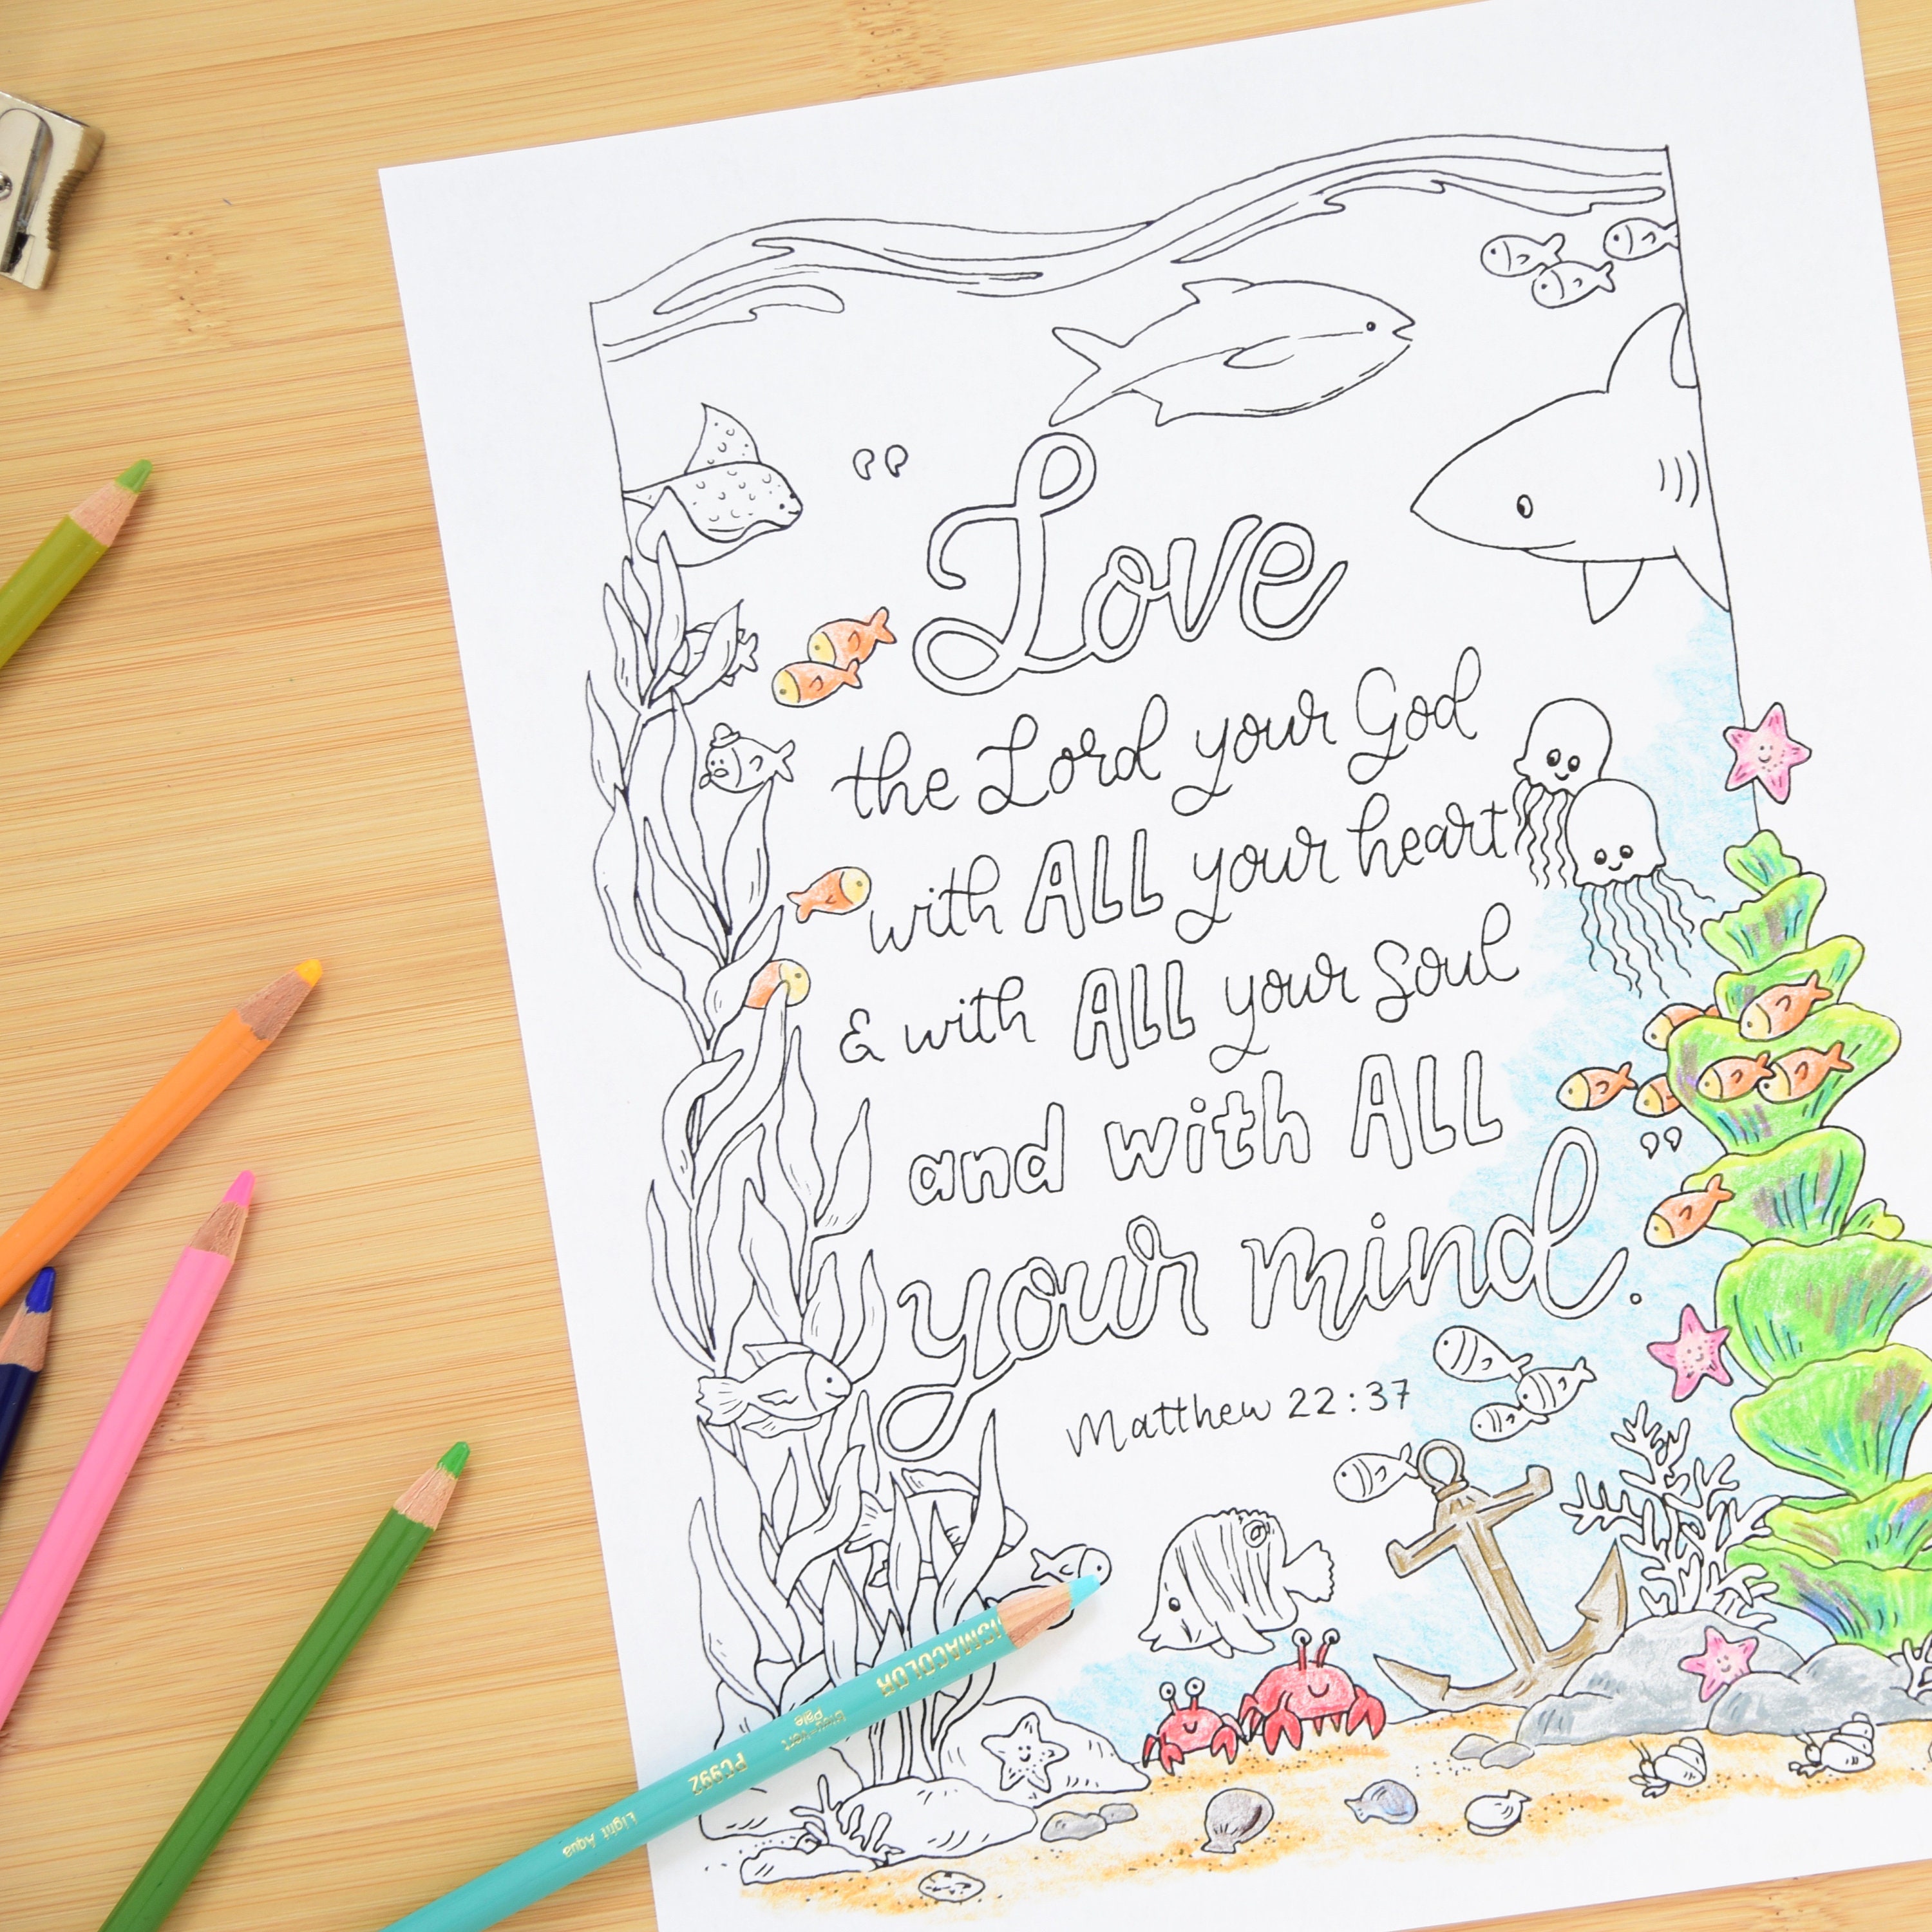 “Love
the Lord your God
with ALL your heart
& with ALL your Soul
and with ALL
your mind.”
Matthew 22:37
PC992
Light Aqua